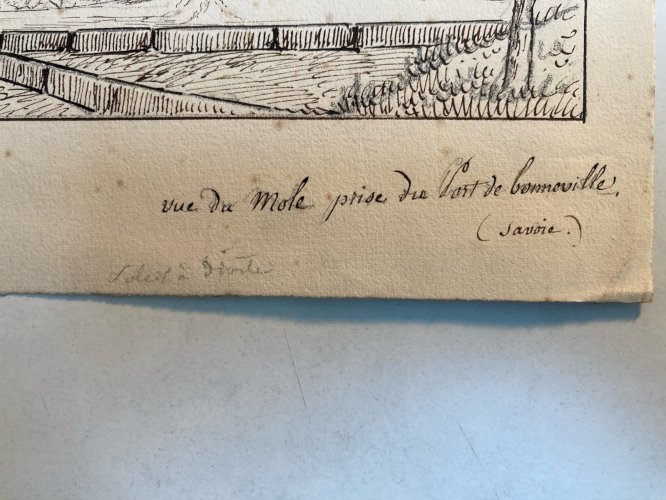 vue du Mole prise du Pont de bonneville.
(savoie.)
Soleil à droite